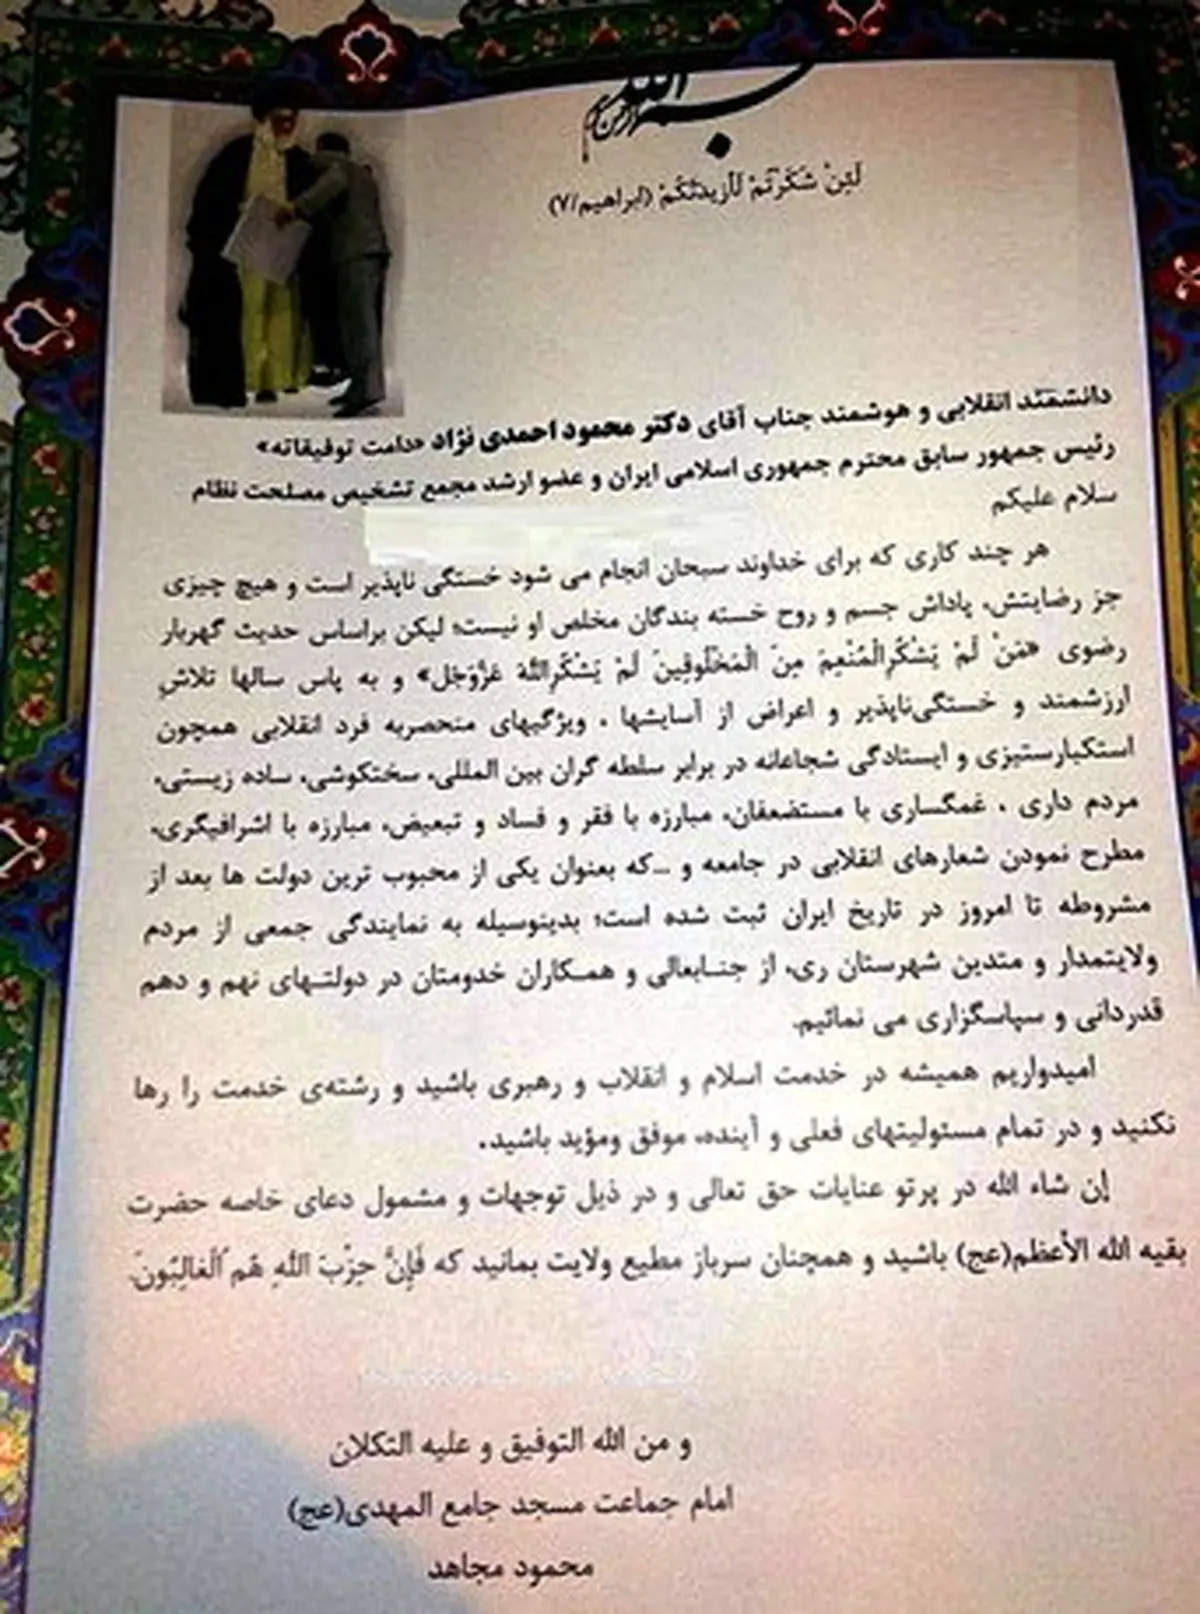 بسم الله الرحمن الرحیم
لَئِنْ شَكَرْتُمْ لَأَزِيدَنَّكُمْ (ابراهیم/۷)
دانشمند انقلابی و هوشمند جناب آقای دکتر محمود احمدی نژاد «دامت توفیقاته»
رئیس جمهور سابق محترم جمهوری اسلامی ایران و عضو ارشد مجمع تشخیص مصلحت نظام
سلام علیکم
هر چند کاری که برای خداوند سبحان انجام می شود خستگی ناپذیر است و هیچ چیزی
جز رضایتش، پاداش جسم و روح خسته بندگان مخلص او نیست؛ لیکن براساس حدیث گهربار
رضوی «مَنْ لَمْ يَشْكُرِالْمُنْعِمَ مِنَ الْمَخْلُوقِينَ لَمْ يَشْكُرِاللَّهَ عَزَّوَجَل» و به پاس سالها تلاش
ارزشمند و خستگی‌ناپذیر و اعراض از آسایشها ، ویژگیهای منحصربه فرد انقلابی همچون
استکبارستیزی و ایستادگی شجاعانه در برابر سلطه گران بین المللی، سختکوشی، ساده زیستی،
مردم داری ، غمگساری با مستضعفان، مبارزه با فقر و فساد و تبعیض، مبارزه با اشرافیگری،
مطرح نمودن شعارهای انقلابی در جامعه و ...که بعنوان یکی از محبوب ترین دولت ها بعد از
مشروطه تا امروز در تاریخ ایران ثبت شده است؛ بدینوسیله به نمایندگی جمعی از مردم
ولایتمدار و متدین شهرستان ری، از جنابعالی و همکاران خدومتان در دولتهای نهم و دهم
قدردانی و سپاسگزاری می نمائیم.
امیدواریم همیشه در خدمت اسلام و انقلاب و رهبری باشید و رشته‌ی خدمت را رها
نکنید و در تمام مسئولیتهای فعلی و آینده، موفق ومؤید باشید.
إن شاء الله در پرتو عنایات حق تعالی و در ذیل توجهات و مشمول دعای خاصه حضرت
بقیه الله الأعظم(عج) باشید و همچنان سرباز مطیع ولایت بمانید که فَإِنَّ حِزْبَ اللَّهِ هُم ٱلْغَالِبُونَ.
و من الله التوفیق و علیه التکلان
امام جماعت مسجد جامع المهدی(عج)
محمود مجاهد